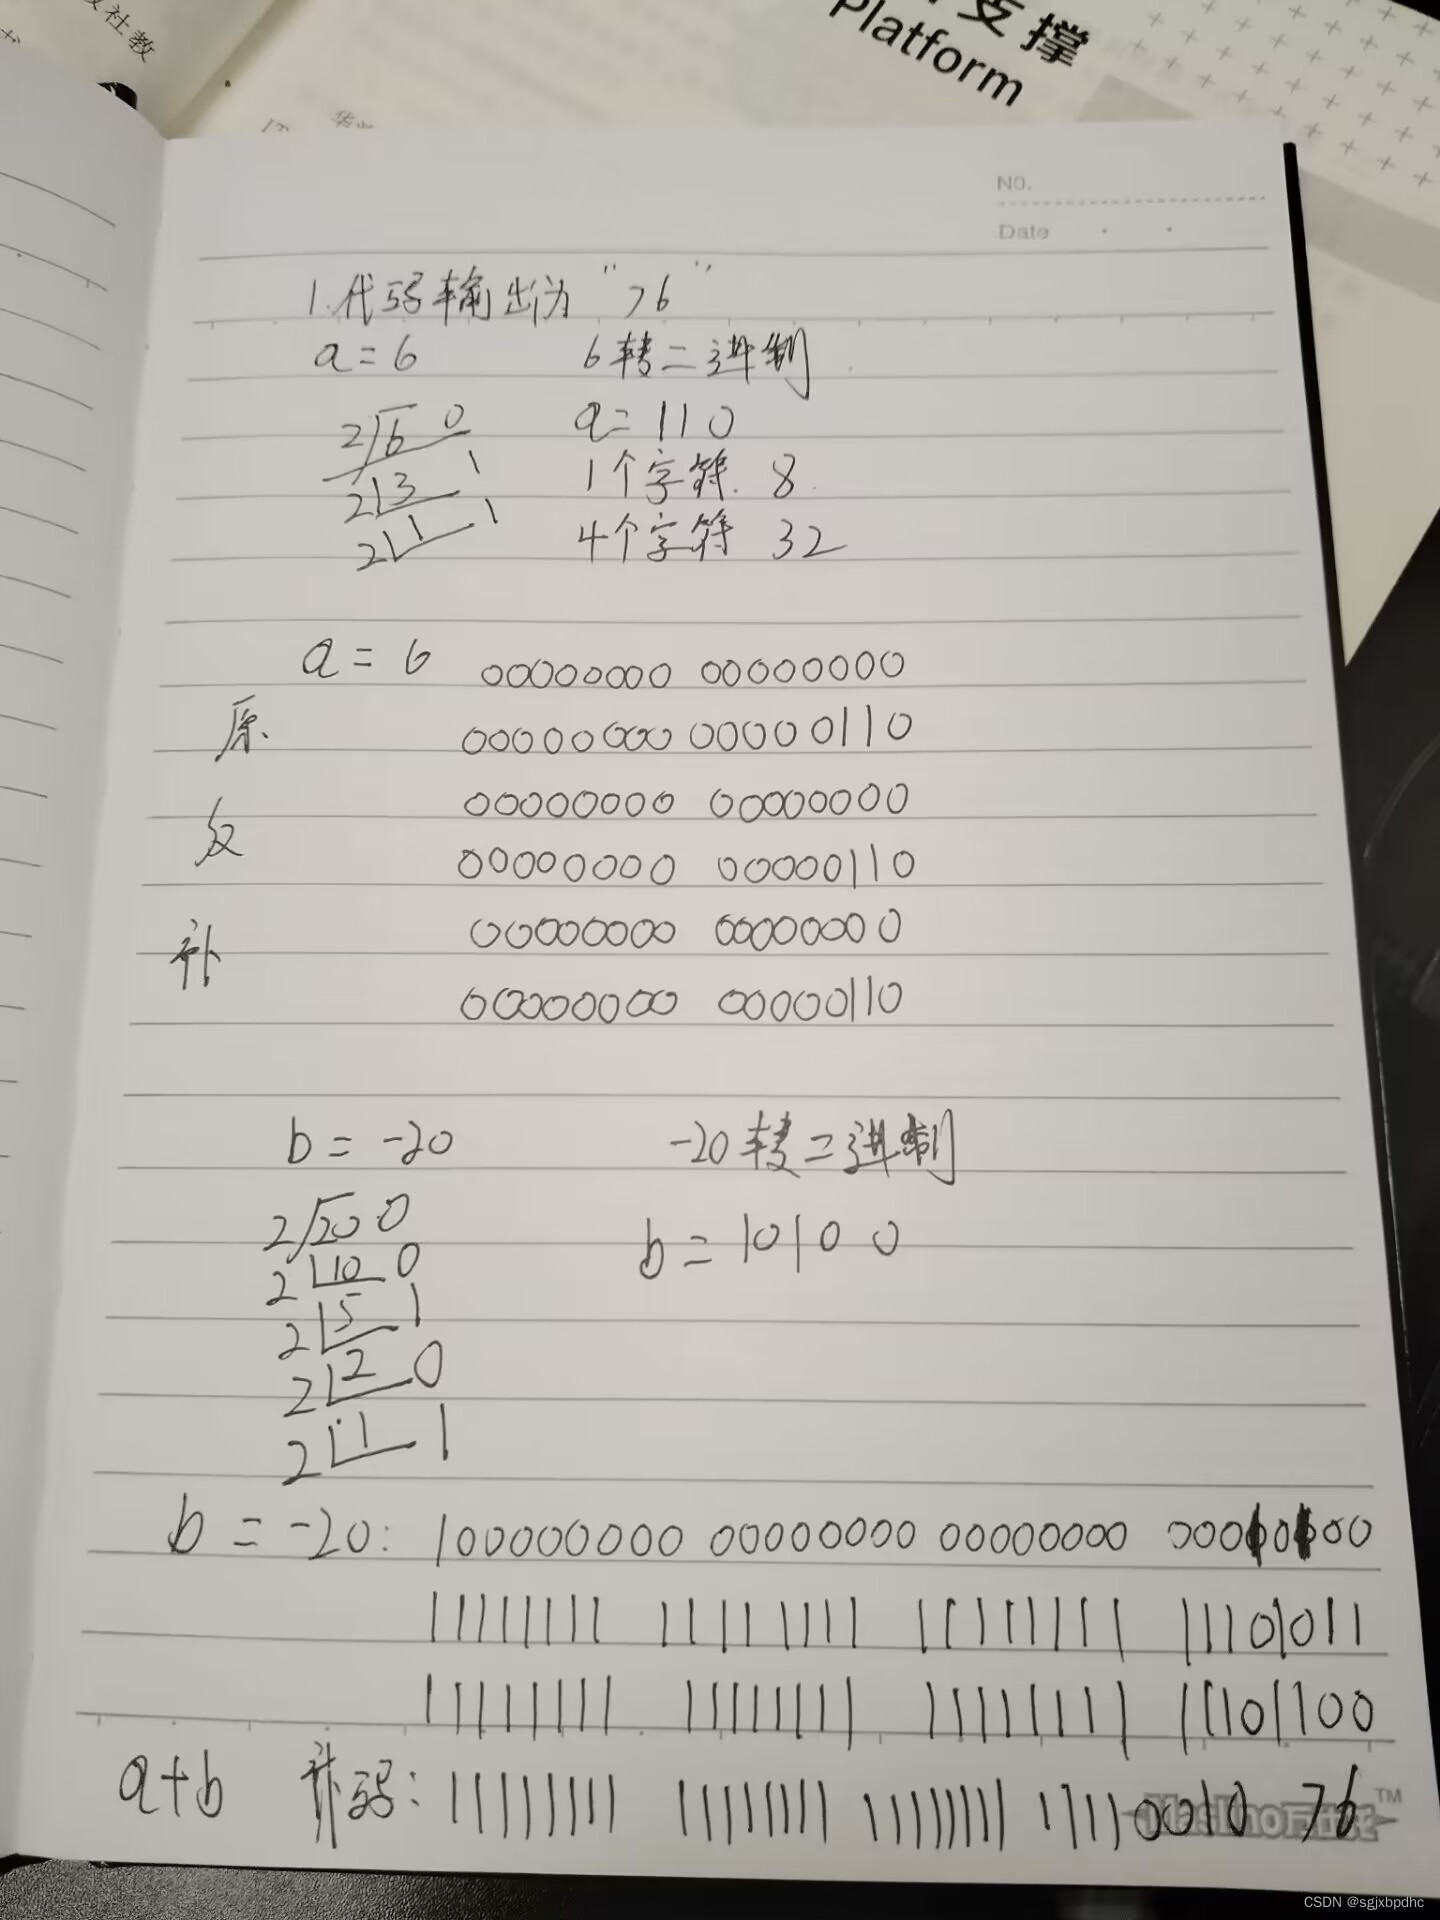 支撑
Platform
社教
书
NO.
Date
1.代码输出为 "76"
a=6 6转二进制
2 6 0
a=110
2 3 1
1个字符. 8
2 1 1
4个字符 32
a = 6 00000000 00000000
原
00000000 00000110
00000000 00000000
反
00000000 00000110
00000000 00000000
补
00000000 00000110
b = -20 -20转二进制
2 20 0
b = 10100
2 10 0
2 5 1
2 2 0
2 1 1
b = -20: 1000000000 00000000 00000000 00010100
11111111 11111111 11111111 11101011
11111111 11111111 11111111 11101100
a+b 补码: 11111111 11111111 11111111 11110010 76
TM
CSDN @sgjxbpdhc